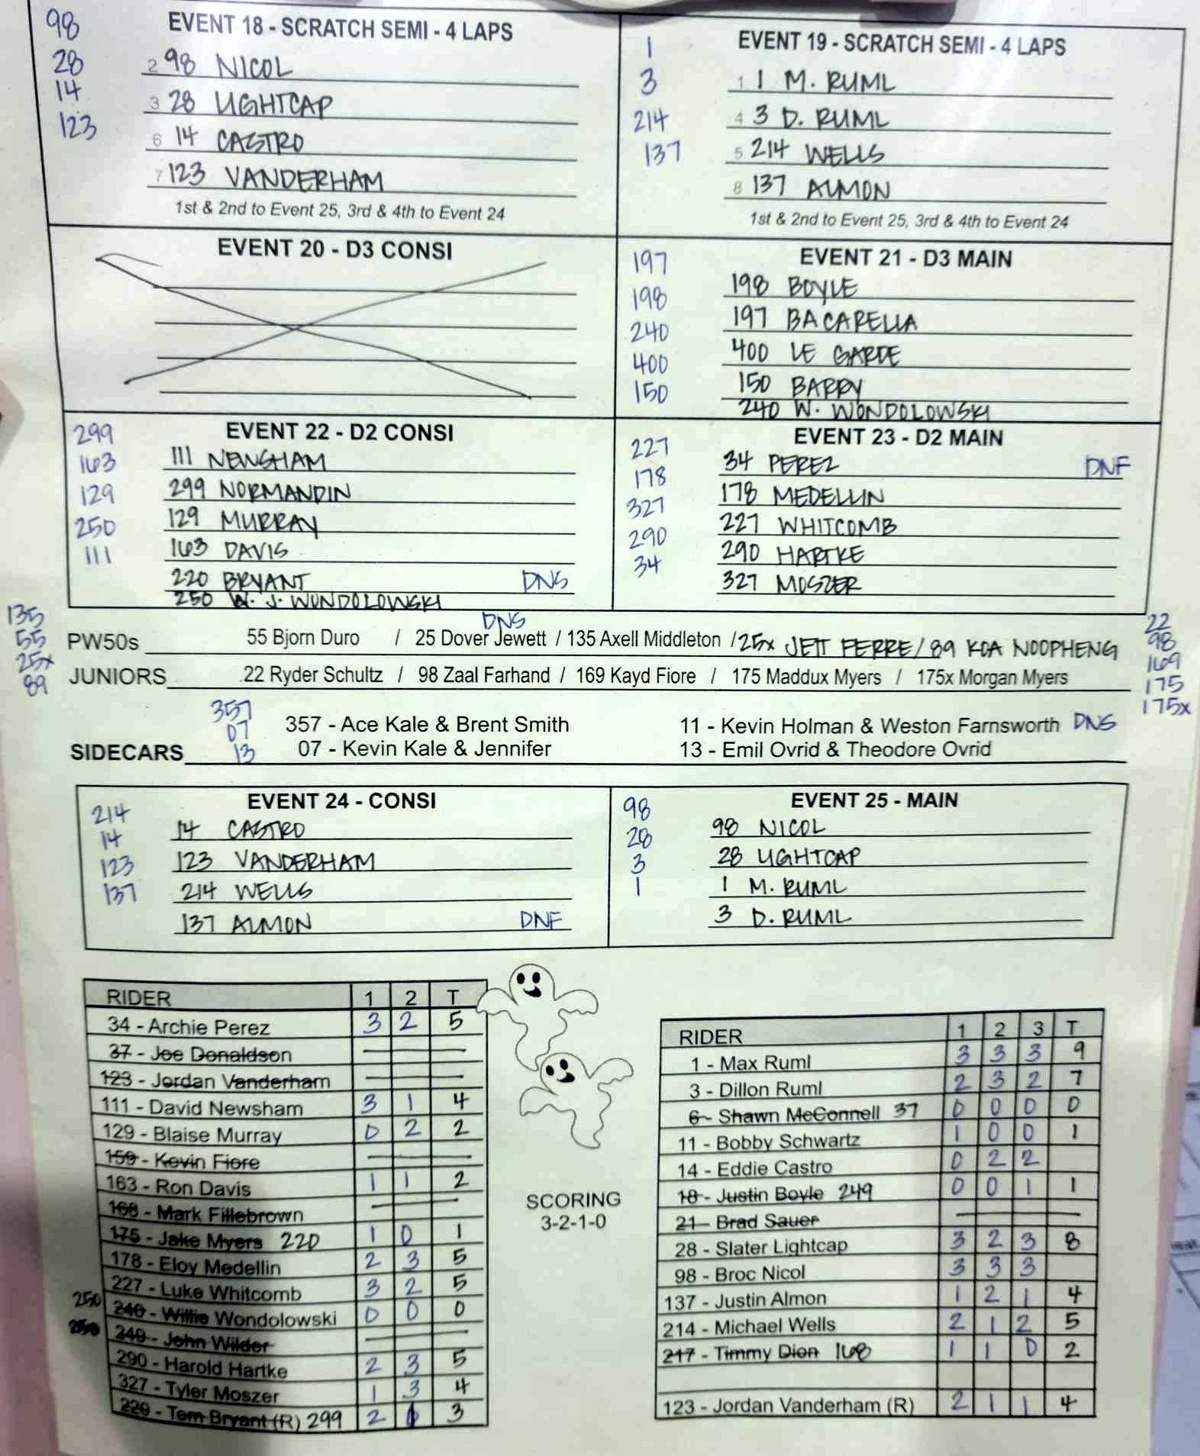 98
28
14
123
EVENT 18 - SCRATCH SEMI - 4 LAPS
2 98 NICOL
3 28 LIGHTCAP
6 14 CASTRO
7 123 VANDERHAM
1st & 2nd to Event 25, 3rd & 4th to Event 24
1
3
214
137
EVENT 19 - SCRATCH SEMI - 4 LAPS
1 1 M. RUML
4 3 D. RUML
5 214 WELLS
8 137 ALMON
1st & 2nd to Event 25, 3rd & 4th to Event 24
EVENT 20 - D3 CONSI
197
198
240
400
150
EVENT 21 - D3 MAIN
198 BOYLE
197 BACARELLA
400 LE GARDE
150 BARRY
240 W. WONDOLOWSKI
299
163
129
250
111
EVENT 22 - D2 CONSI
111 NEWSHAM
299 NORMANDIN
129 MURRAY
163 DAVIS
220 BRYANT DNS
250 W. J. WONDOLOWSKI
227
178
327
290
34
EVENT 23 - D2 MAIN
34 PEREZ DNF
178 MEDELLIN
227 WHITCOMB
290 HARTKE
327 MOSZER
135
55
25x
89
DNS
PW50s 55 Bjorn Duro / 25 Dover Jewett / 135 Axell Middleton / 25x JETT FERRE / 89 KOA NOOPHENG
JUNIORS 22 Ryder Schultz / 98 Zaal Farhand / 169 Kayd Fiore / 175 Maddux Myers / 175x Morgan Myers
22
98
169
175
175x
357
07
13
SIDECARS
357 - Ace Kale & Brent Smith
07 - Kevin Kale & Jennifer
11 - Kevin Holman & Weston Farnsworth DNS
13 - Emil Ovrid & Theodore Ovrid
214
14
123
137
EVENT 24 - CONSI
14 CASTRO
123 VANDERHAM
214 WELLS
137 ALMON DNF
98
28
3
1
EVENT 25 - MAIN
98 NICOL
28 LIGHTCAP
1 M. RUML
3 D. RUML
RIDER 1 2 T
34 - Archie Perez 3 2 5
37 - Joe Donaldson
123 - Jordan Vanderham
111 - David Newsham 3 1 4
129 - Blaise Murray 0 2 2
159 - Kevin Fiore
163 - Ron Davis 1 1 2
168 - Mark Fillebrown
175 - Jake Myers 220 1 0 1
178 - Eloy Medellin 2 3 5
227 - Luke Whitcomb 3 2 5
250 240 - Willie Wondolowski 0 0 0
250 249 - John Wilder
290 - Harold Hartke 2 3 5
327 - Tyler Moszer 1 3 4
220 - Tom Bryant (R) 299 2 1 3
SCORING
3-2-1-0
RIDER 1 2 3 T
1 - Max Ruml 3 3 3 9
3 - Dillon Ruml 2 3 2 7
6 - Shawn McConnell 37 0 0 0 0
11 - Bobby Schwartz 1 0 0 1
14 - Eddie Castro 0 2 2
18 - Justin Boyle 249 0 0 1 1
21 - Brad Sauer
28 - Slater Lightcap 3 2 3 8
98 - Broc Nicol 3 3 3
137 - Justin Almon 1 2 1 4
214 - Michael Wells 2 1 2 5
217 - Timmy Dion 168 1 1 0 2
123 - Jordan Vanderham (R) 2 1 1 4